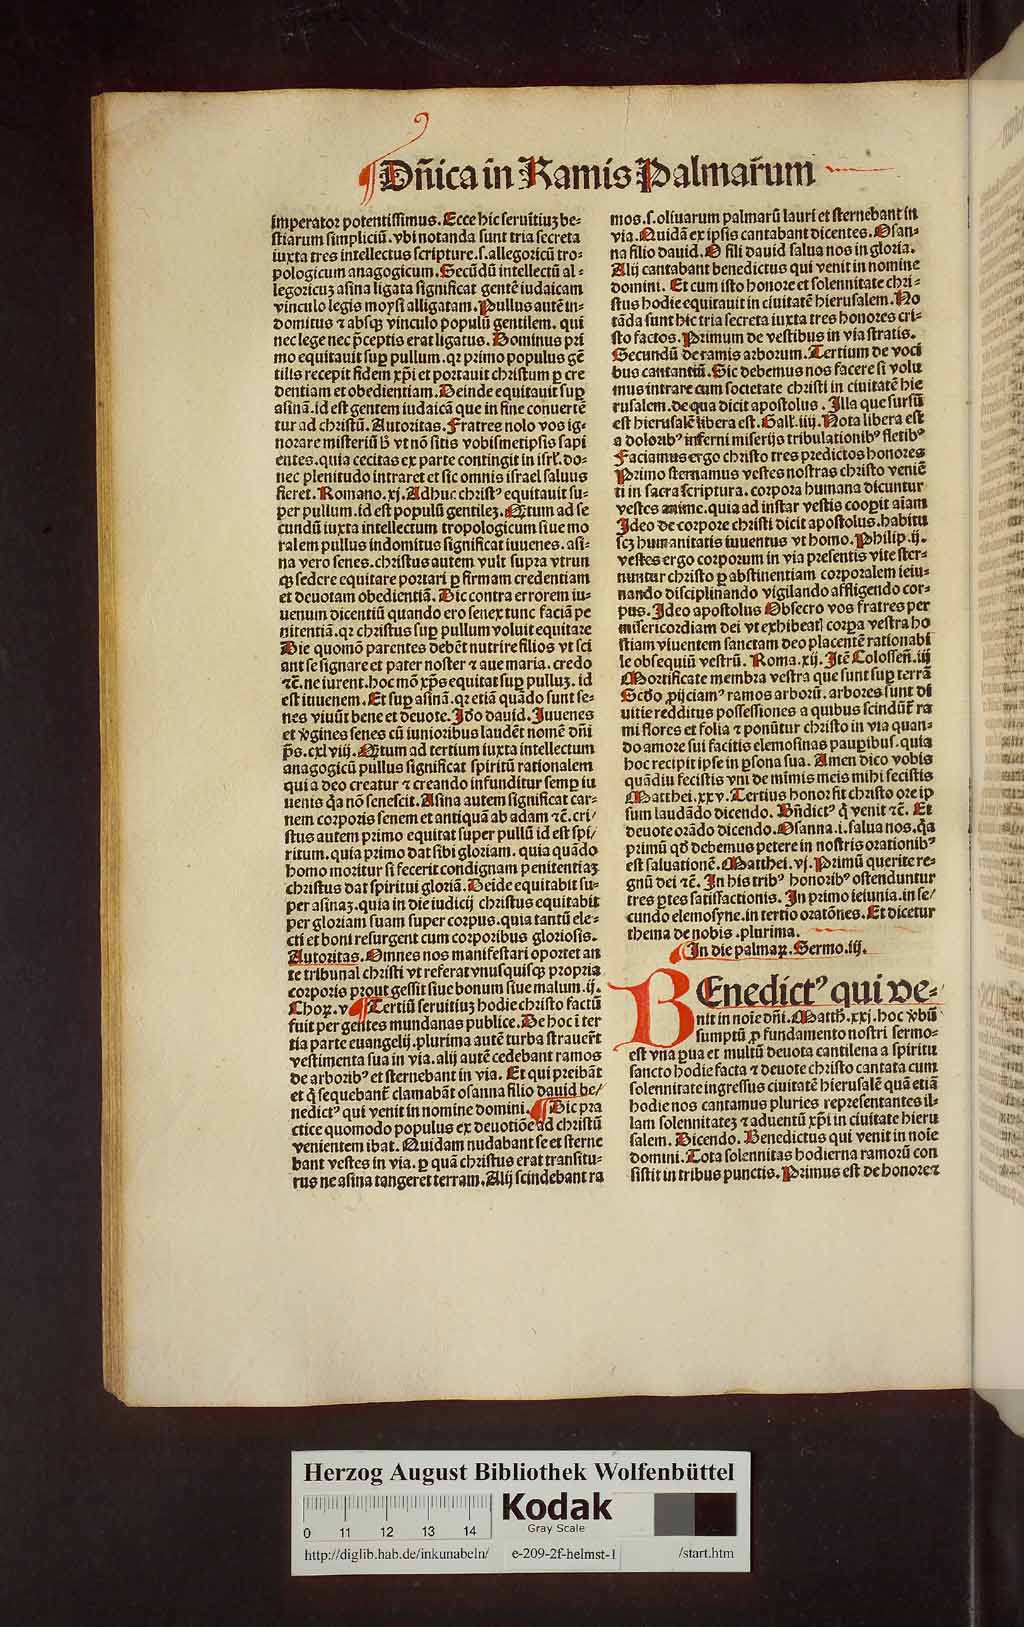 ¶Dn̄ica in Ramis Palmaꝝum
imperator potentissimus. Ecce hic seruitiuꝫ be-
stiarum simpliciū. vbi notanda sunt tria secreta
iuxta tres intellectus scripture. s. allegoricū tro-
pologicum anagogicum. Secūdū intellectū al-
legoricuꝫ asina ligata significat gentē iudaicam
vinculo legis moysi alligatam. Pullus autē in-
domitus ⁊ absqꝫ vinculo populū gentilem. qui
nec lege nec p̄ceptis erat ligatus. Dominus pri
mo equitauit suꝑ pullum. qꝛ primo populus gē
tilis recepit fidem xp̄i et portauit christum ꝑ cre
dentiam et obedientiam. Deinde equitauit suꝑ
asinā. id est gentem iudaicā que in fine conuertē
tur ad christū. Autoritas. Fratres nolo vos ig-
norare misteriū ꝫ vt nō sitis vobismetipsis sapi
entes. quia cecitas ex parte contingit in isrl̄. do-
nec plenitudo intraret et sic omnis israel saluus
fieret. Romano. xj. Adhuc christꝰ equitauit su-
per pullum. id est populū gentileꝫ. Qꝫtum ad se
cundū iuxta intellectum tropologicum siue mo
ralem pullus indomitus significat iuuenes. asi-
na vero senes. christus autem vult supra vtrun
qꝫ sedere equitare portari ꝑ firmam credentiam
et deuotam obedientiā. Hic contra errorem iu-
uenum dicentiū quando ero senex tunc faciā pe
nitentiā. qꝛ christus suꝑ pullum voluit equitare
Hic quomō parentes debēt nutrire filios vt sci
ant se signare et pater noster ⁊ aue maria. credo
⁊c̄. ne iurent. hoc mō xp̄s equitat suꝑ pulluꝫ. id
est iuuenem. Et suꝑ asinā. qꝛ etiā quādo sunt se-
nes viuūt bene et deuote. Jdo dauid. Juuenes
et v̓gines senes cū iunioribus laudēt nomē dn̄i
p̄s. cxlviij. Qꝫtum ad tertium iuxta intellectum
anagogicū pullus significat spiritū rationalem
qui a deo creatur ⁊ creando infunditur semꝑ iu
uenis qꝛ nō senescit. Asina autem significat car-
nem corporis senem et antiquā ab adam ⁊c̄. cri/
stus autem primo equitat super pullū id est spi/
ritum. quia primo dat sibi gloriam. quia quādo
homo moritur si fecerit condignam penitentiaꝫ
christus dat spiritui gloriā. Deide equitabit su-
per asinaꝫ. quia in die iudicij christus equitabit
per gloriam suam super corpus. quia tantū ele-
cti et boni resurgent cum corporibus gloriosis.
Autoritas. Omnes nos manifestari oportet an
te tribunal christi vt referat vnusquisqꝫ propria
corporis prout gessit siue bonum siue malum. ij.
Choꝝ. v ¶Tertiū seruitiuꝫ hodie christo factū
fuit per gentes mundanas publice. De hoc ī ter
tia parte euangelij. plurima autē turba strauer̄t
vestimenta sua in via. alij autē cedebant ramos
de arboribꝰ et sternebant in via. Et qui preibāt
et q̄ sequebant̄ clamabāt osanna filio dauid be/
nedictꝰ qui venit in nomine domini. ¶Hic pra
ctice quomodo populus ex deuotiōe ad christū
venientem ibat. Quidam nudabant se et sterne
bant vestes in via. ꝑ quā christus erat transitu-
rus ne asina tangeret terram. Alij scindebant ra
mos. s. oliuarum palmarū lauri et sternebant in
via. Quidā ex ipsis cantabant dicentes. Osan-
na filio dauid. O fili dauid salua nos in gloria.
Alij cantabant benedictus qui venit in nomine
domini. Et cum isto honore et solennitate chri-
stus hodie equitauit in ciuitatē hierusalem. No
tāda sunt hic tria secreta iuxta tres honores cri-
sto factos. Primum de vestibus in via stratis.
Secundū de ramis arborum. Tertium de voci
bus cantantiū. Sic debemus nos facere si volu
mus intrare cum societate christi in ciuitatē hie
rusalem. de qua dicit apostolus. Illa que sursū
est hierusalē libera est. Gall̓. iiij. Nota libera est
a doloribꝰ inferni miserijs tribulationibꝰ fletibꝰ
Faciamus ergo christo tres predictos honores
Primo sternamus vestes nostras christo veniē
ti in sacra scriptura. corpora humana dicuntur
vestes anime. quia ad instar vestis cooꝑit aīam
Jdeo de corpore christi dicit apostolus. habitu
scꝫ humanitatis inuentus vt homo. Philip. ij.
vestes ergo corporum in via presentis vite ster-
nuntur christo ꝑ abstinentiam corporalem ieiu-
nando disciplinando vigilando affligendo cor-
pus. Jdeo apostolus Obsecro vos fratres per
misericordiam dei vt exhibeatꝭ corꝑa vestra ho
stiam viuentem sanctam deo placentē rationabi
le obsequiū vestrū. Roma. xij. Jtē Colossen̄. iij
Mortificate membra vestra que sunt suꝑ terrā
Scdo ꝓijciamꝰ ramos arborū. arbores sunt di
uitie redditus possessiones a quibus scindūt̄ ra
mi flores et folia ⁊ ponūtur christo in via quan-
do amore sui facitis elemosinas pauꝑibus. quia
hoc recipit ipse in ꝑsona sua. Amen dico vobis
quādiu fecistis vni de mimis meis mihi fecistis
Matthei. xxv. Tertius honor fit christo ore ip
sum laudādo dicendo. Bn̄dictꝰ q̄ venit ⁊c̄. Et
deuote orādo dicendo. Osanna. i. salua nos. qꝛ
primū qd̄ debemus petere in nostris orationibꝰ
est saluationē. Matthei. vj. Primū querite re-
gnū dei ⁊c̄. Jn his tribꝰ honoribꝰ ostenduntur
tres ꝑtes satisfactionis. Jn primo ieiunia. in se/
cundo elemosyne. in tertio oratōnes. Et dicetur
thema de nobis. plurima.
¶Jn die palmaꝝ. Sermo. iij.
BEnedictꝰ qui ve-
nit in noīe dn̄i. Matth̄. xxj. hoc v̓bū
sumptū ꝓ fundamento nostri sermo-
est vna ꝑua et multū deuota cantilena a spiritu
sancto hodie facta ⁊ deuote christo cantata cum
solennitate ingressus ciuitatē hierusalē quā etiā
hodie nos cantamus pluries representantes il-
lam solennitateꝫ ⁊ aduentū xp̄i in ciuitate hieru
salem. Dicendo. Benedictus qui venit in noīe
domini. Tota solennitas hodierna ramorū con
sistit in tribus punctis. Primus est de honore ⁊
Herzog August Bibliothek Wolfenbüttel
0 11 12 13 14
Kodak
Gray Scale
http://diglib.hab.de/inkunabeln/ e-209-2f-helmst-1 /start.htm